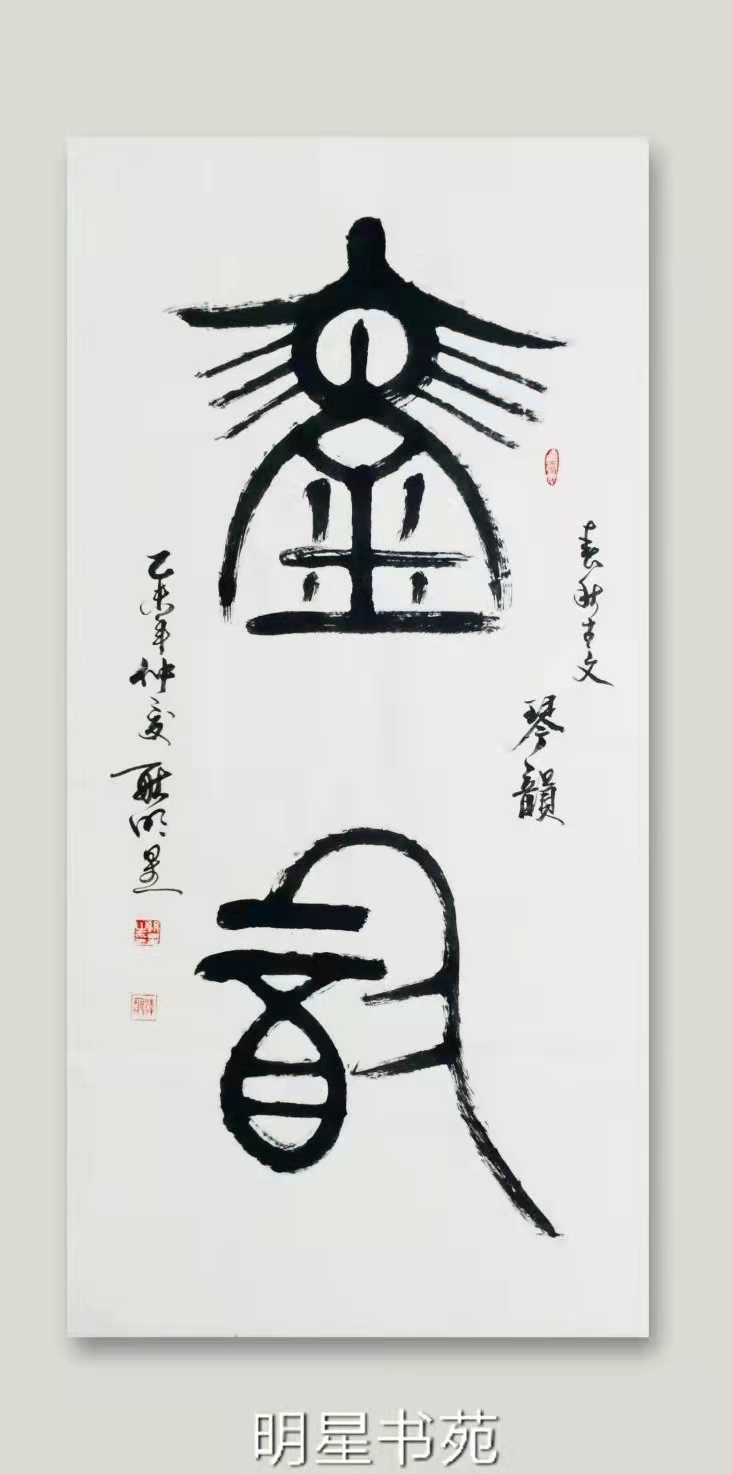 春秋古文
琴韻
琴韻
乙未年仲夏
耿明星
明星书苑